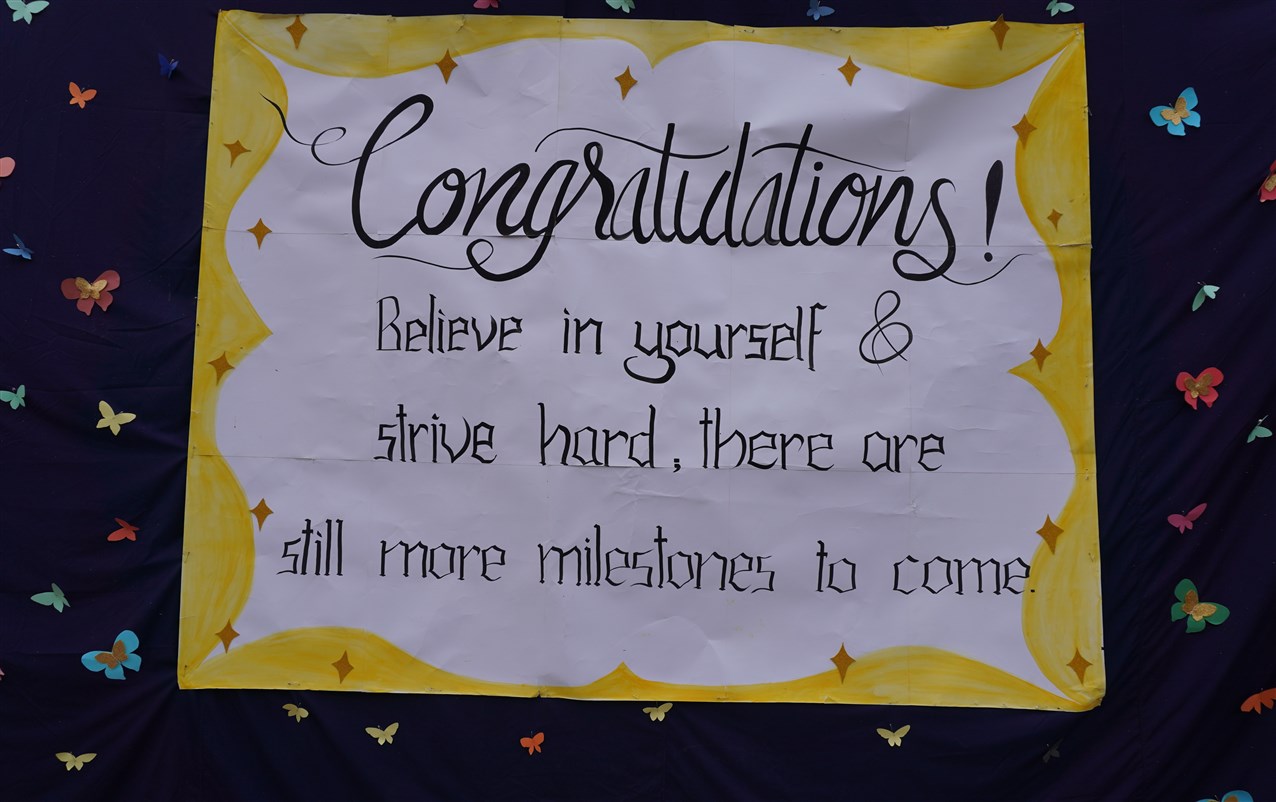 Congratulations!
Believe in yourself &
strive hard; there are
still more milestones to come.